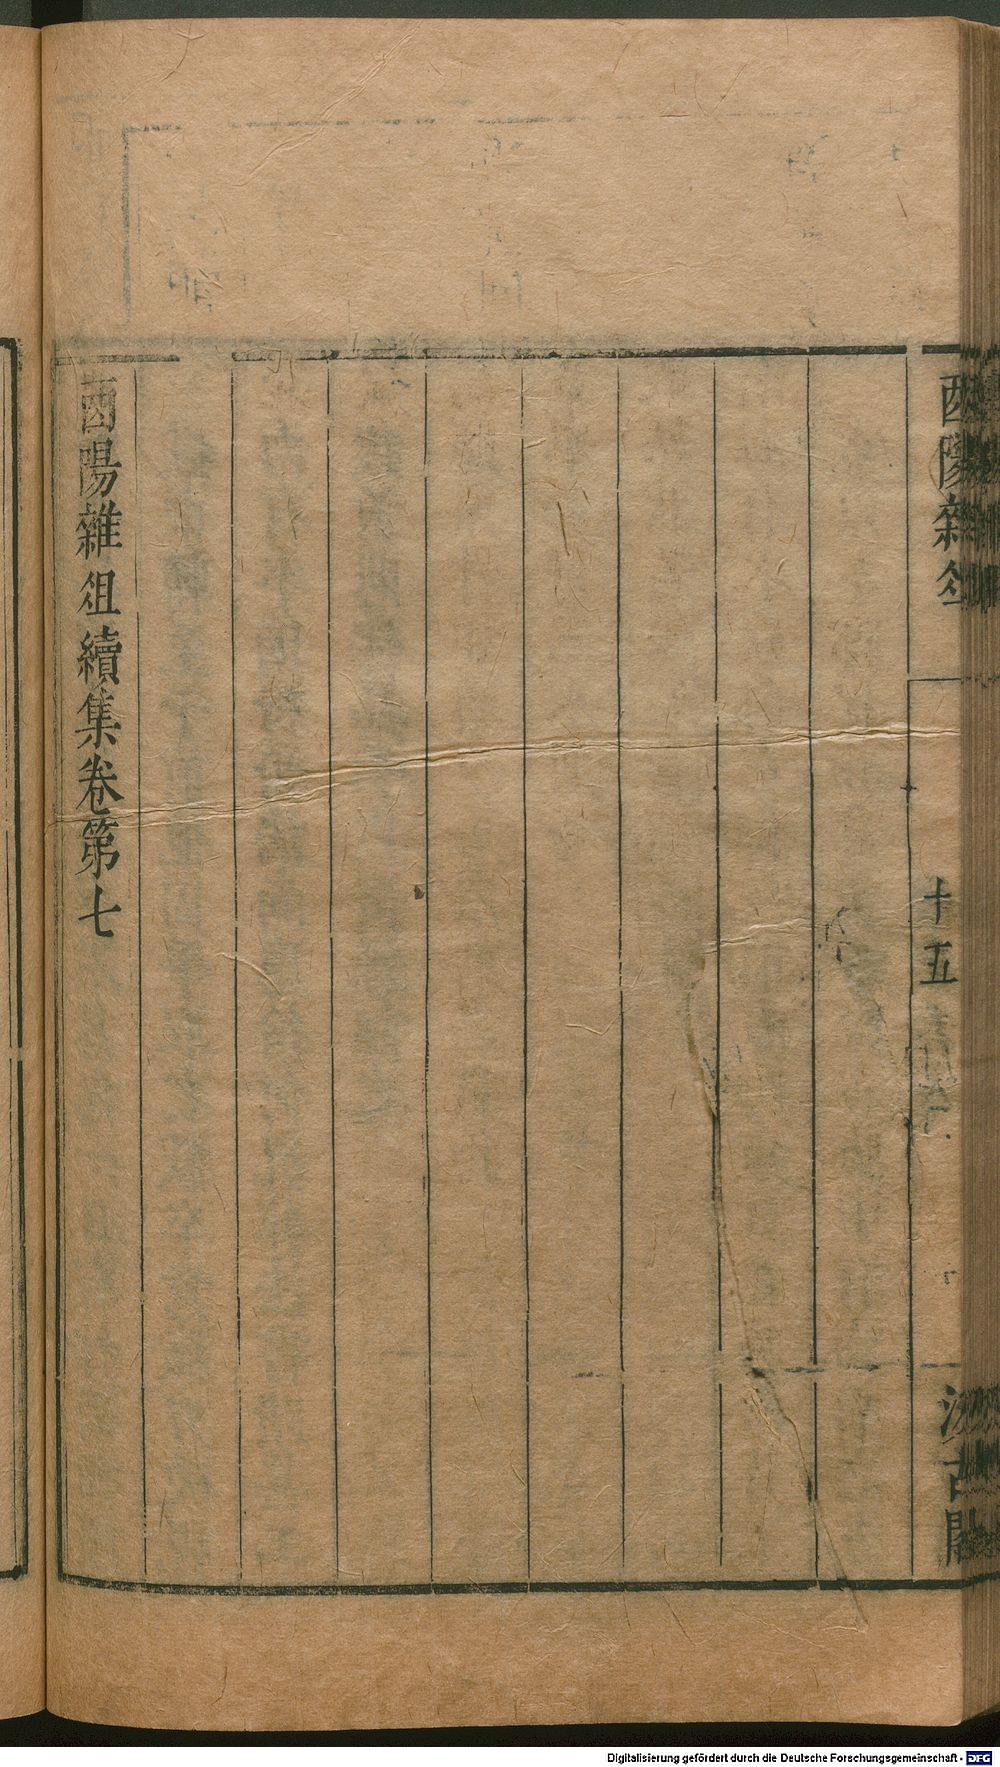 酉陽雜俎
十五
汲古閣
酉陽雜俎續集卷第七
Digitalisierung gefördert durch die Deutsche Forschungsgemeinschaft - DFG